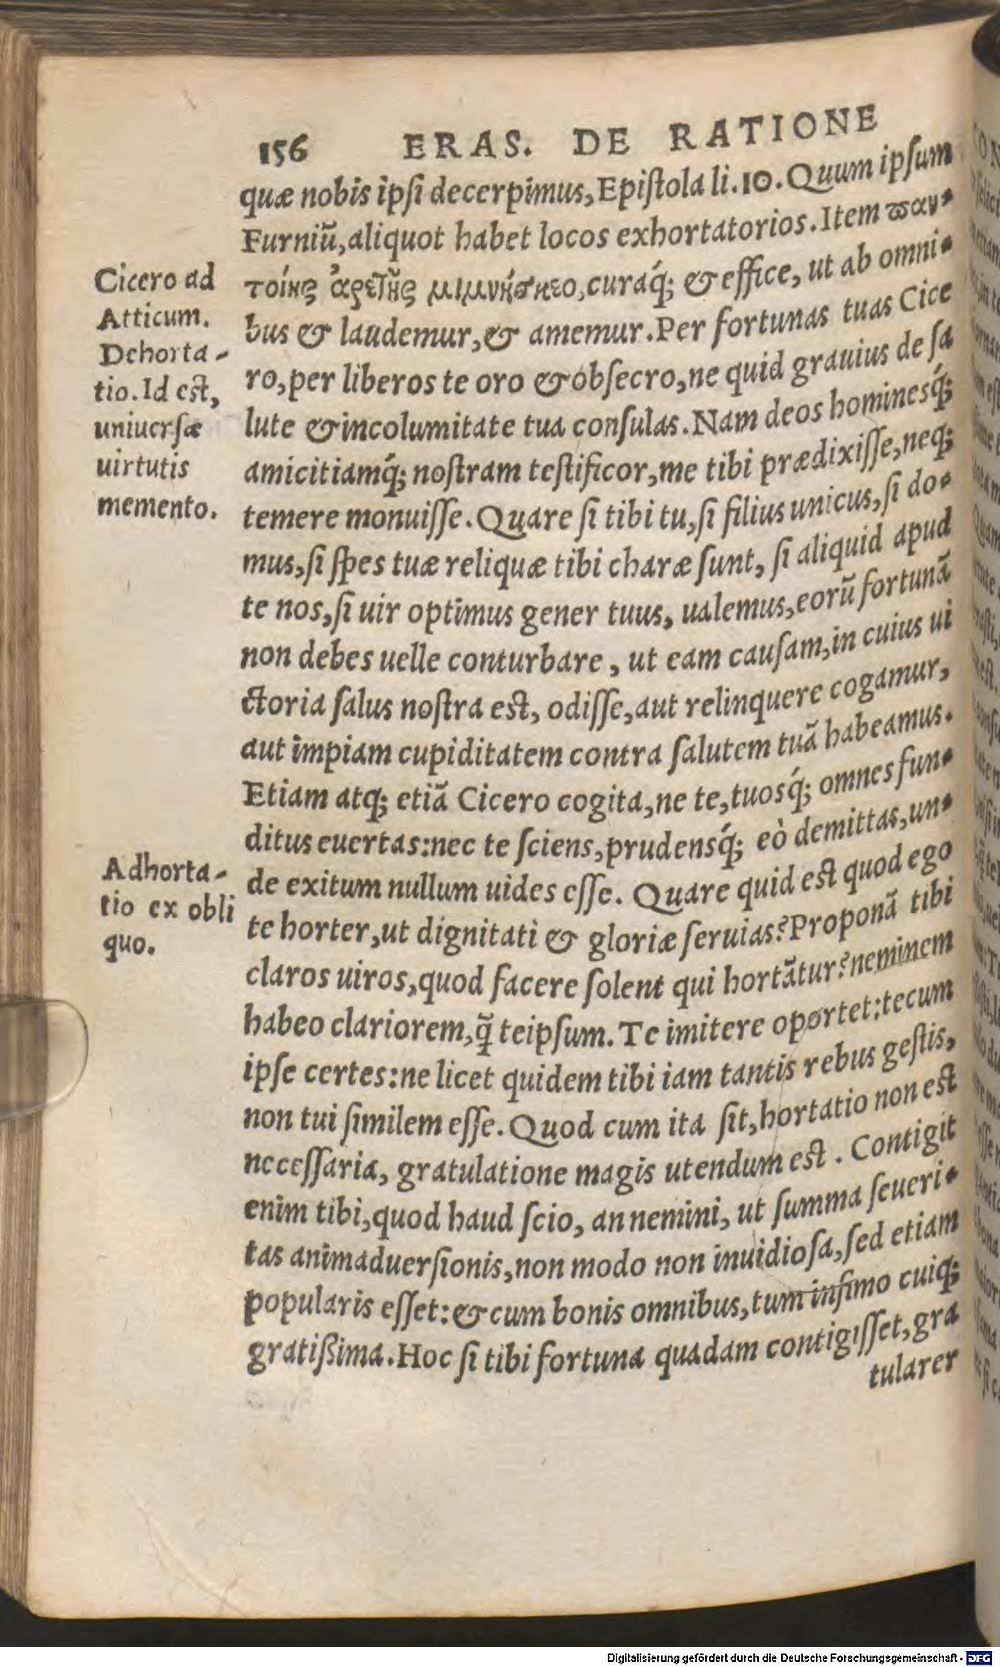 156 ERAS. DE RATIONE
quæ nobis ipſi decerpimus, Epiſtola li. 10. Quum ipſum
Furniũ, aliquot habet locos exhortatorios. Item παν-
τοίης ἀρετῆς μιμνήσκεο, curaq́; & effice, ut ab omni-
bus & laudemur, & amemur. Per fortunas tuas Cice
ro, per liberos te oro & obſecro, ne quid grauius de ſa
lute & incolumitate tua conſulas. Nam deos hominesq́;
amicitiamq́; noſtram teſtificor, me tibi prædixiſſe, neq;
temere monuiſſe. Quare ſi tibi tu, ſi filius unicus, ſi do-
mus, ſi ſpes tuæ reliquæ tibi charæ ſunt, ſi aliquid apud
te nos, ſi uir optimus gener tuus, ualemus, eorũ fortunã
non debes uelle conturbare, ut eam cauſam, in cuius ui
ctoria ſalus noſtra eſt, odiſſe, aut relinquere cogamur,
aut impiam cupiditatem contra ſalutem tuã habeamus.
Etiam atq; etiã Cicero cogita, ne te, tuosq́; omnes fun-
ditus euertas: nec te ſciens, prudensq́; eò demittas, un-
de exitum nullum uides eſſe. Quare quid eſt quod ego
te horter, ut dignitati & gloriæ ſeruias? Proponã tibi
claros uiros, quod facere ſolent qui hortãtur? neminem
habeo clariorem, q̃ teipſum. Te imitere oportet: tecum
ipſe certes: ne licet quidem tibi iam tantis rebus geſtis,
non tui ſimilem eſſe. Quod cum ita ſit, hortatio non eſt
neceſſaria, gratulatione magis utendum eſt. Contigit
enim tibi, quod haud ſcio, an nemini, ut ſumma ſeueri-
tas animaduerſionis, non modo non inuidioſa, ſed etiam
popularis eſſet: & cum bonis omnibus, tum infimo cuiq;
gratißima. Hoc ſi tibi fortuna quadam contigiſſet, gra
tularer
Cicero ad
Atticum.
Dehorta-
tio. Id eſt,
uniuerſæ
uirtutis
memento.
Adhorta-
tio ex obli
quo.
Digitalisierung gefördert durch die Deutsche Forschungsgemeinschaft - DFG